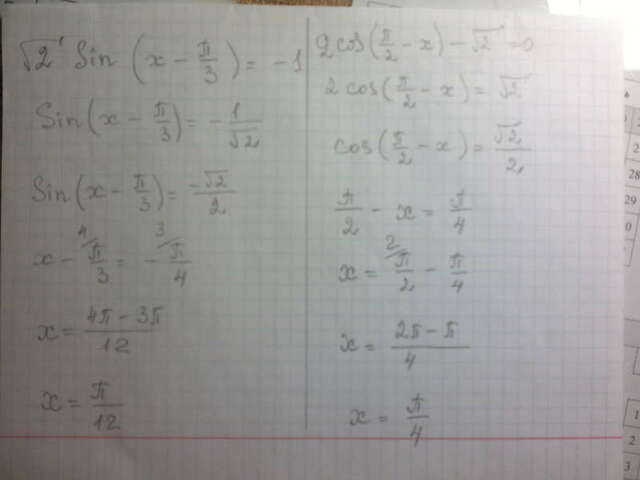 √2 Sin (x - π/3) = -1
Sin (x - π/3) = - 1/√2
Sin (x - π/3) = -√2/2
x - π/3 = - π/4
4 3
x = (4π - 3π)/12
x = π/12
2cos(π/2 - x) - √2 = 0
2 cos(π/2 - x) = √2
cos(π/2 - x) = √2/2
π/2 - x = π/4
2
x = π/2 - π/4
x = (2π - π)/4
x = π/4
2
28
29
0
1
2
3